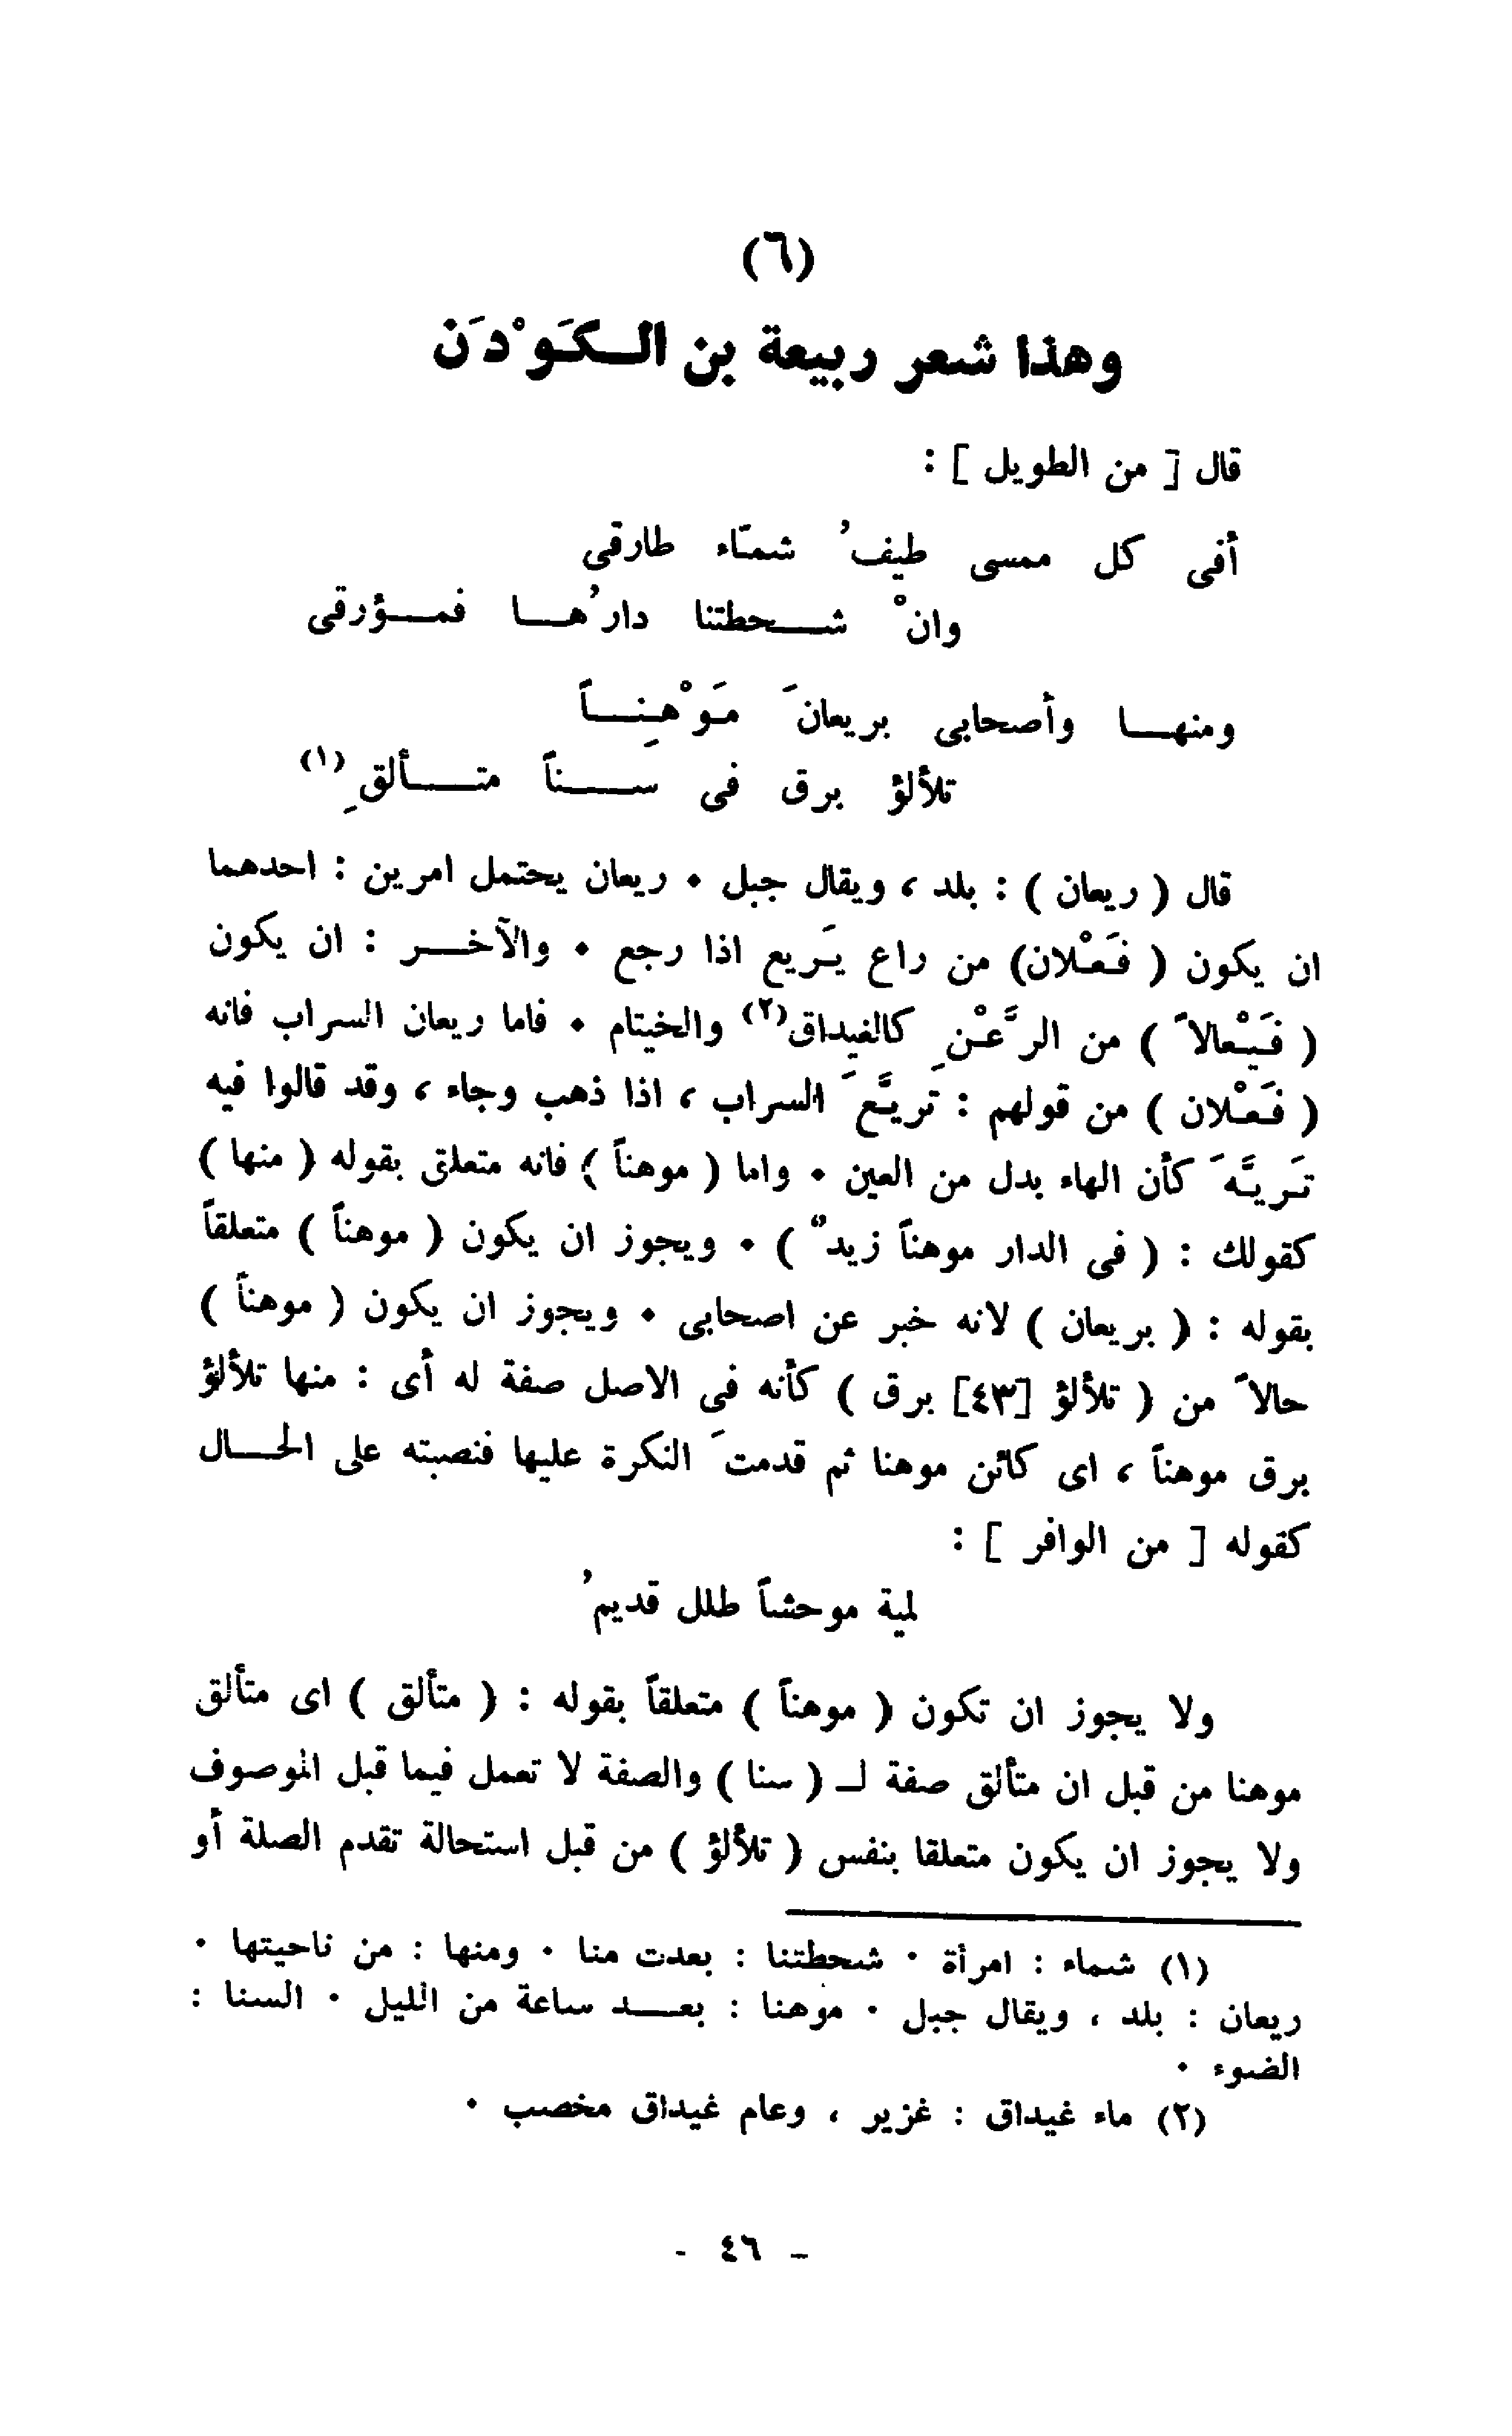 (٦)
وهذا شعر ربيعة بن الـكَوْدَن
قال [ من الطويل ] :
أفى كل ممسى طيفُ شمّاء طارقى
وانْ شـــحطتنا دارُهـــا فمـــؤرقى
ومنهـــا وأصحابى بريعانَ مَوْهِنـــاً
تلألؤ برق فى ســـناً متـــألقِ (١)
قال ( ريعان ) : بلد ، ويقال جبل ٠ ريعان يحتمل امرين : احدهما
ان يكون ( فَعْلان) من راع يَريع اذا رجع ٠ والآخـــر : ان يكون
( فَيْعالاً ) من الرَّعْنِ كالغيداق(٢) والخيتام ٠ فاما ريعان السراب فانه
( فَعْلان ) من قولهم : تريَّعَ السراب ، اذا ذهب وجاء ، وقد قالوا فيه
تَريَّهَ كأن الهاء بدل من العين ٠ واما ( موهناً ) فانه متعلق بقوله ( منها )
كقولك : ( فى الدار موهناً زيدٌ ) ٠ ويجوز ان يكون ( موهناً ) متعلقاً
بقوله : ( بريعان ) لانه خبر عن اصحابى ٠ ويجوز ان يكون ( موهناً )
حالاً من ( تلألؤ [٤٣] برق ) كأنه فى الاصل صفة له أى : منها تلألؤ
برق موهناً ، اى كائن موهنا ثم قدمتَ النكرة عليها فنصبته على الحـــال
كقوله [ من الوافر ] :
لمية موحشاً طلل قديمُ
ولا يجوز ان تكون ( موهناً ) متعلقاً بقوله : ( متألق ) اى متألق
موهنا من قبل ان متألق صفة لـ ( سنا ) والصفة لا تعمل فيما قبل الموصوف
ولا يجوز ان يكون متعلقا بنفس ( تلألؤ ) من قبل استحالة تقدم الصلة أو
(١) شماء : امرأة ٠ شحطتنا : بعدت منا ٠ ومنها : من ناحيتها ٠
ريعان : بلد ، ويقال جبل ٠ موهنا : بعـــد ساعة من الليل ٠ السنا :
الضوء ٠
(٢) ماء غيداق : غزير ، وعام غيداق مخصب ٠
- ٤٦ -